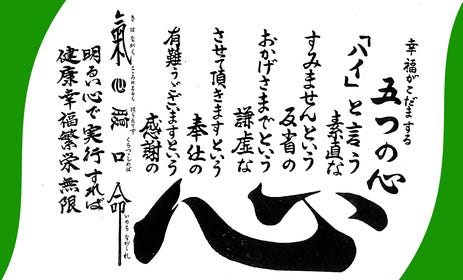 幸福がこだまする
五つの心
「ハイ」と言う
素直な
すみませんという
反省の
おかげさまでという
謙虚な
させて頂きますという
奉仕の
有難うございますという
感謝の
心
氣心腹口命
明るい心で実行すれば
健康幸福繁栄無限